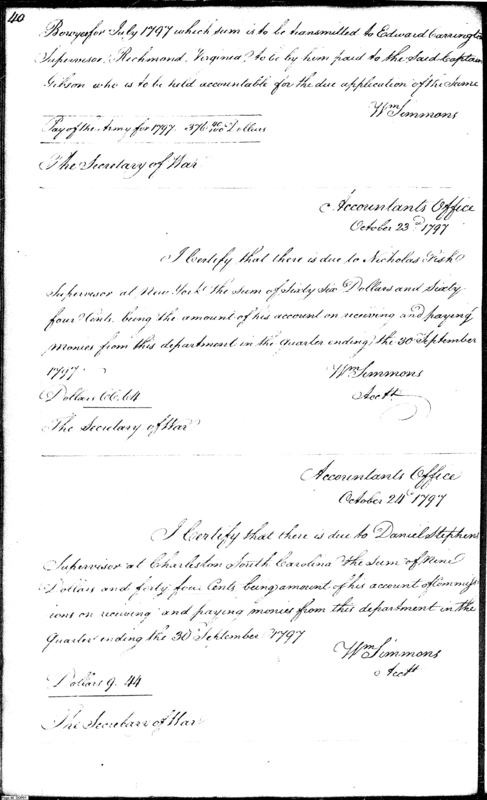 40
Bowyer for July 1797 which sum is to be transmitted to Edward Carrington
Supervisor Richmond Virginea to be by him paid to the said Captain
Gibson who is to be held accountable for the due application of the same
Wm Simmons
Pay of the Army for 1797. 376 40/100 Dollars
The Secretary of War
Accountants Office
October 23d 1797
I Certify that there is due to Nicholas Fish
Supervisor at New York the sum of Sixty Six Dollars and Sixty
four Cents being the amount of his account on receiving and paying
monies from this department in the quarter ending the 30 September
1797
Wm Simmons
Dollars 66.64
Acctt
The Secretary of War
Accountants Office
October 24 1797
I Certify that there is due to Daniel Stephens
Supervisor at Charleston South Carolina the sum of Nine
Dollars and forty four Cents being amount of his account of Commiss
ions on receiving and paying monies from this department in the
Quarter ending the 30 September 1797
Wm Simmons
Acctt
Dollars 9.44
The Secretary of War